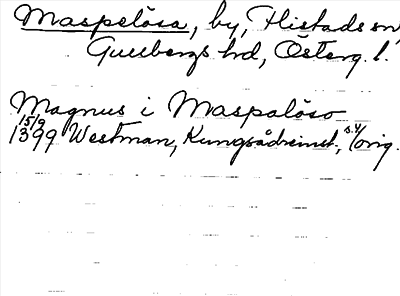 Maspelösa, by, Flistads sn
Gullbergs hd, Österg. l.
Magnus i Maspalöso
15/9
1399 Westman, Kungsådreinst., s. 4/orig.